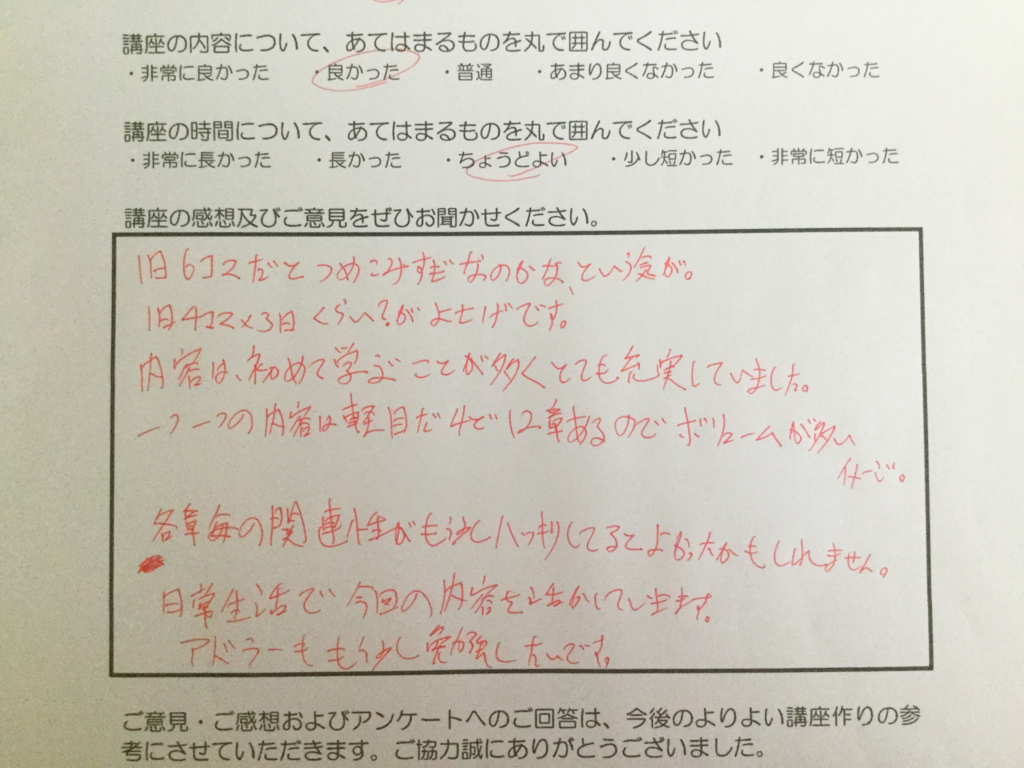 講座の内容について、あてはまるものを丸で囲んでください
・非常に良かった ・良かった ・普通 ・あまり良くなかった ・良くなかった
講座の時間について、あてはまるものを丸で囲んでください
・非常に長かった ・長かった ・ちょうどよい ・少し短かった ・非常に短かった
講座の感想及びご意見をぜひお聞かせください。
1日6コマだとつめこみすぎなのかな、という気が。
1日4コマ×3日くらい?がよさげです。
内容は、初めて学ぶことが多くとても充実していました。
一つ一つの内容は軽目だけど12章あるのでボリュームが多い
イメージ。
各章毎の関連性がもう少しハッキリしてるとよかったかもしれません。
日常生活で今回の内容を活かしています。
アドラーももう少し勉強したいです。
ご意見・ご感想およびアンケートへのご回答は、今後のよりよい講座作りの参
考にさせていただきます。ご協力誠にありがとうございました。